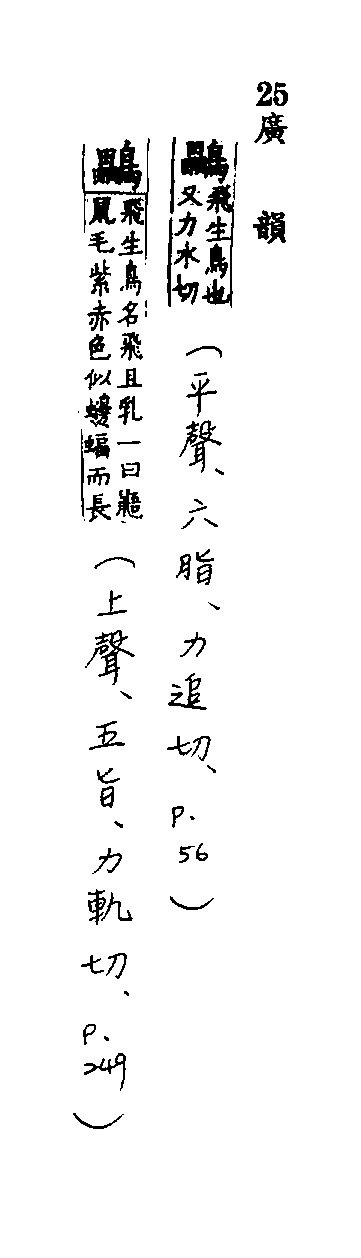 25廣韻
鸓飛生鳥也又力水切(平聲、六脂、力追切、P.56)
鸓飛生鳥名飛且乳一曰鼯鼠毛紫赤色似蝙蝠而長(上聲、五旨、力軌切、P.249)